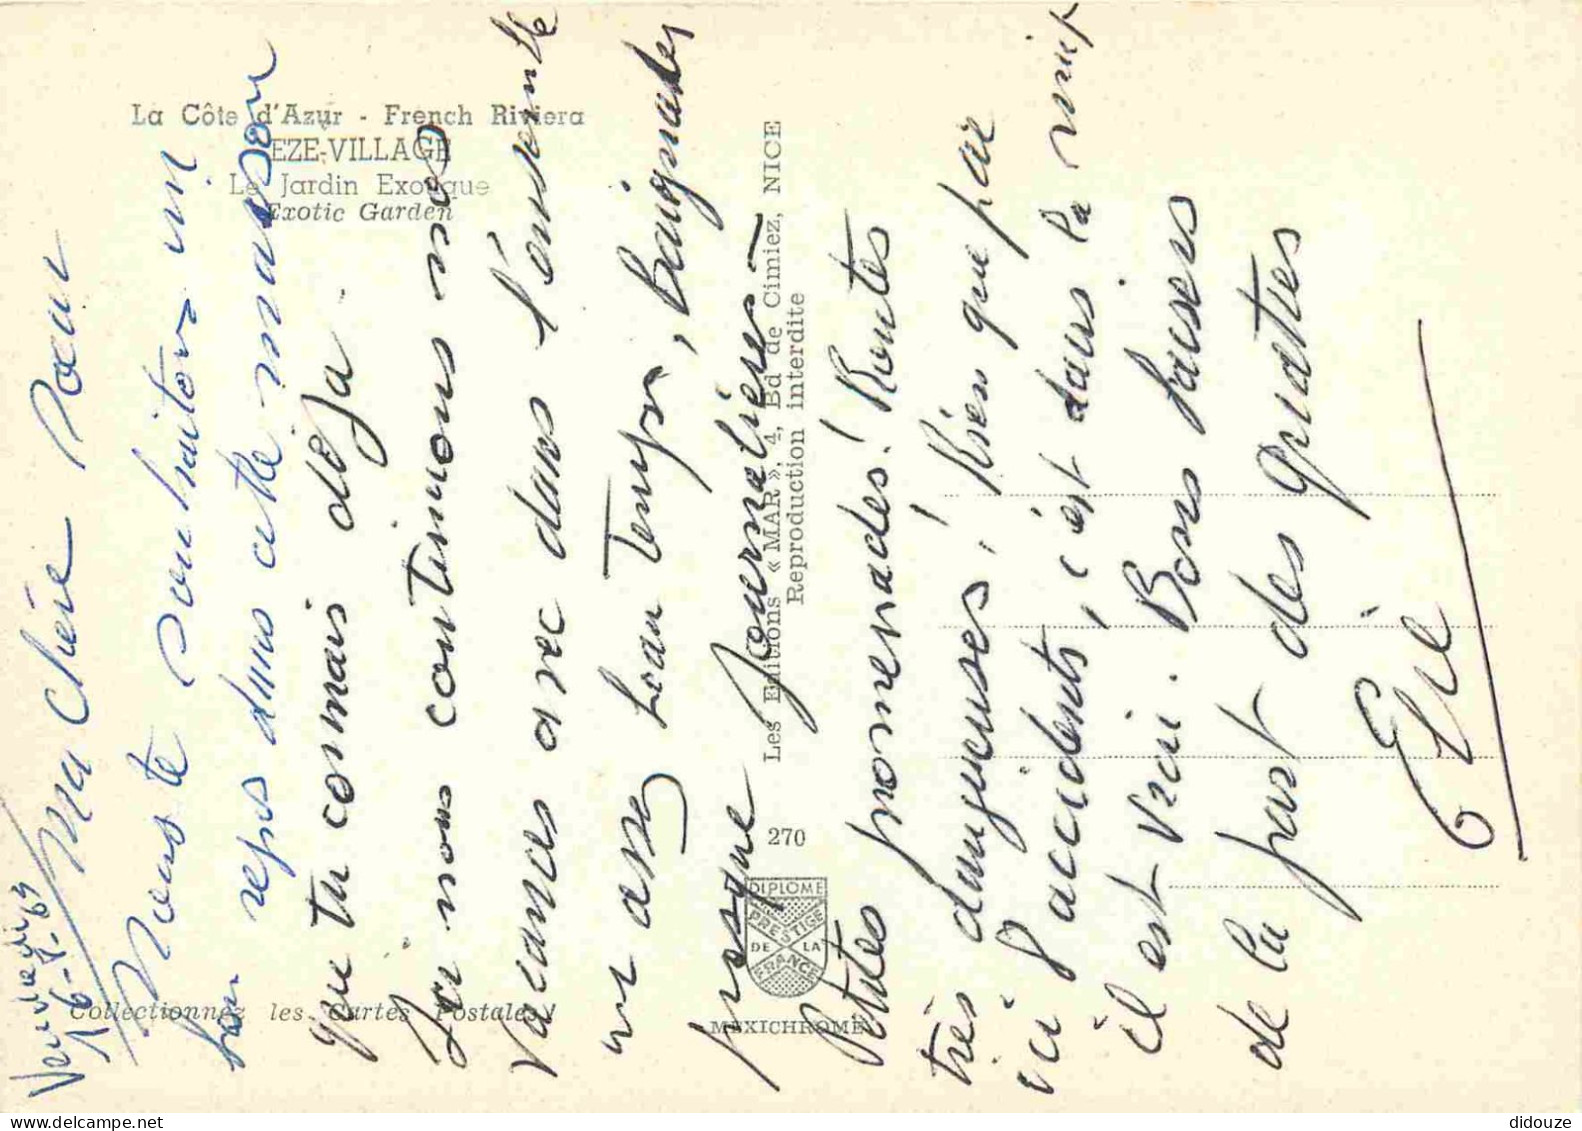 La Côte d'Azur - French Riviera
EZE-VILLAGE
Le Jardin Exotique
Exotic Garden
Collectionnez les Cartes Postales!
Les Editions « MAR », 4, Bd de Cimiez, NICE
Reproduction interdite
270
DIPLOME
PRESTIGE
DE LA
FRANCE
MEXICHROME
Ma Chère
Nous te souhaitons un
bon repos dans cette maison
que tu connais déjà.
Ici nous continuons nos
vacances avec dans l'ensemble
un assez beau Temps, Baignades
presque Journalières
Petites promenades! Routes
très dangereuses! Rien que par
ici 8 accidents, c'est dans la nuit
il est vrai. Bons baisers
de la part des quatres
didouze